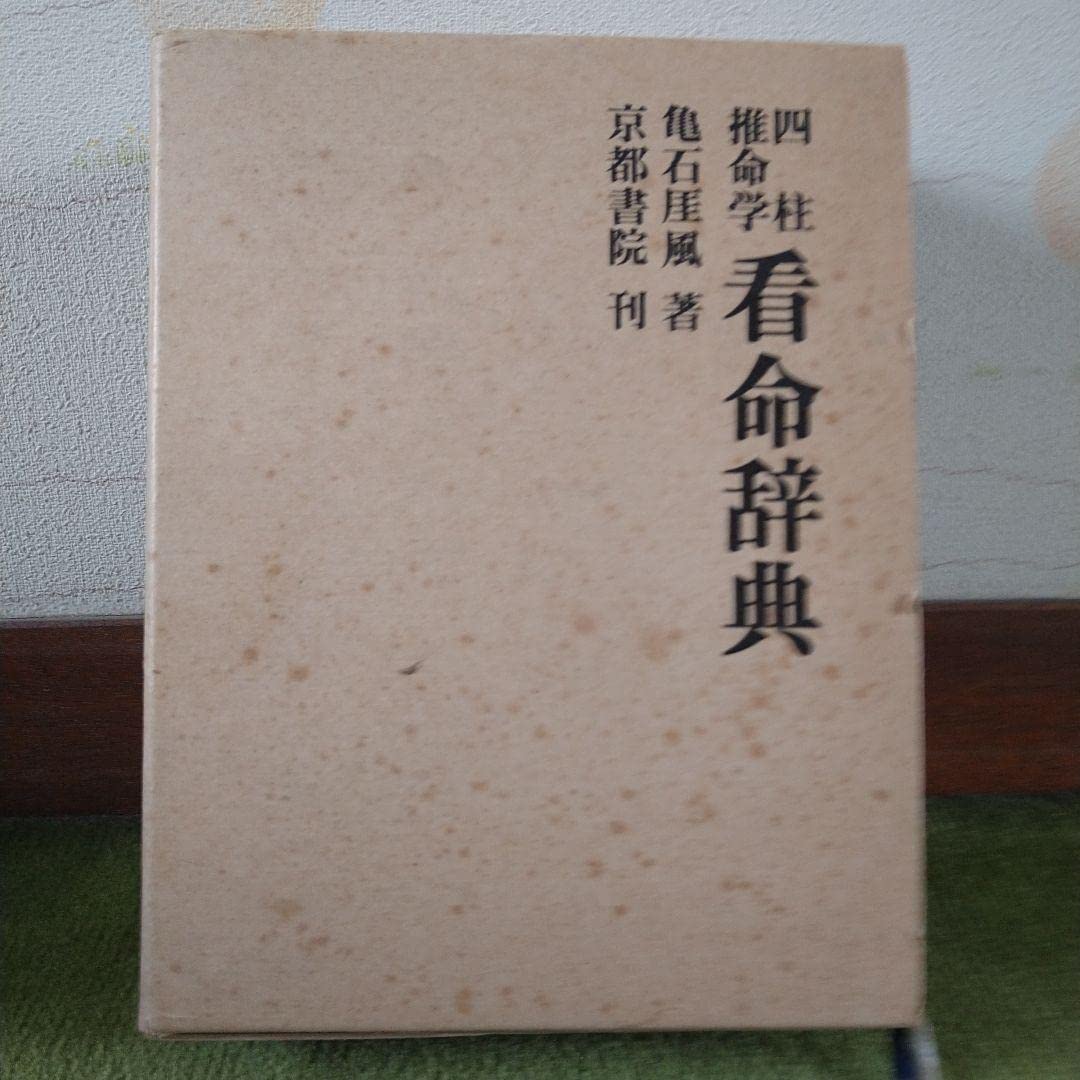 四柱
推命学
看命辞典
亀石厓風 著
京都書院 刊